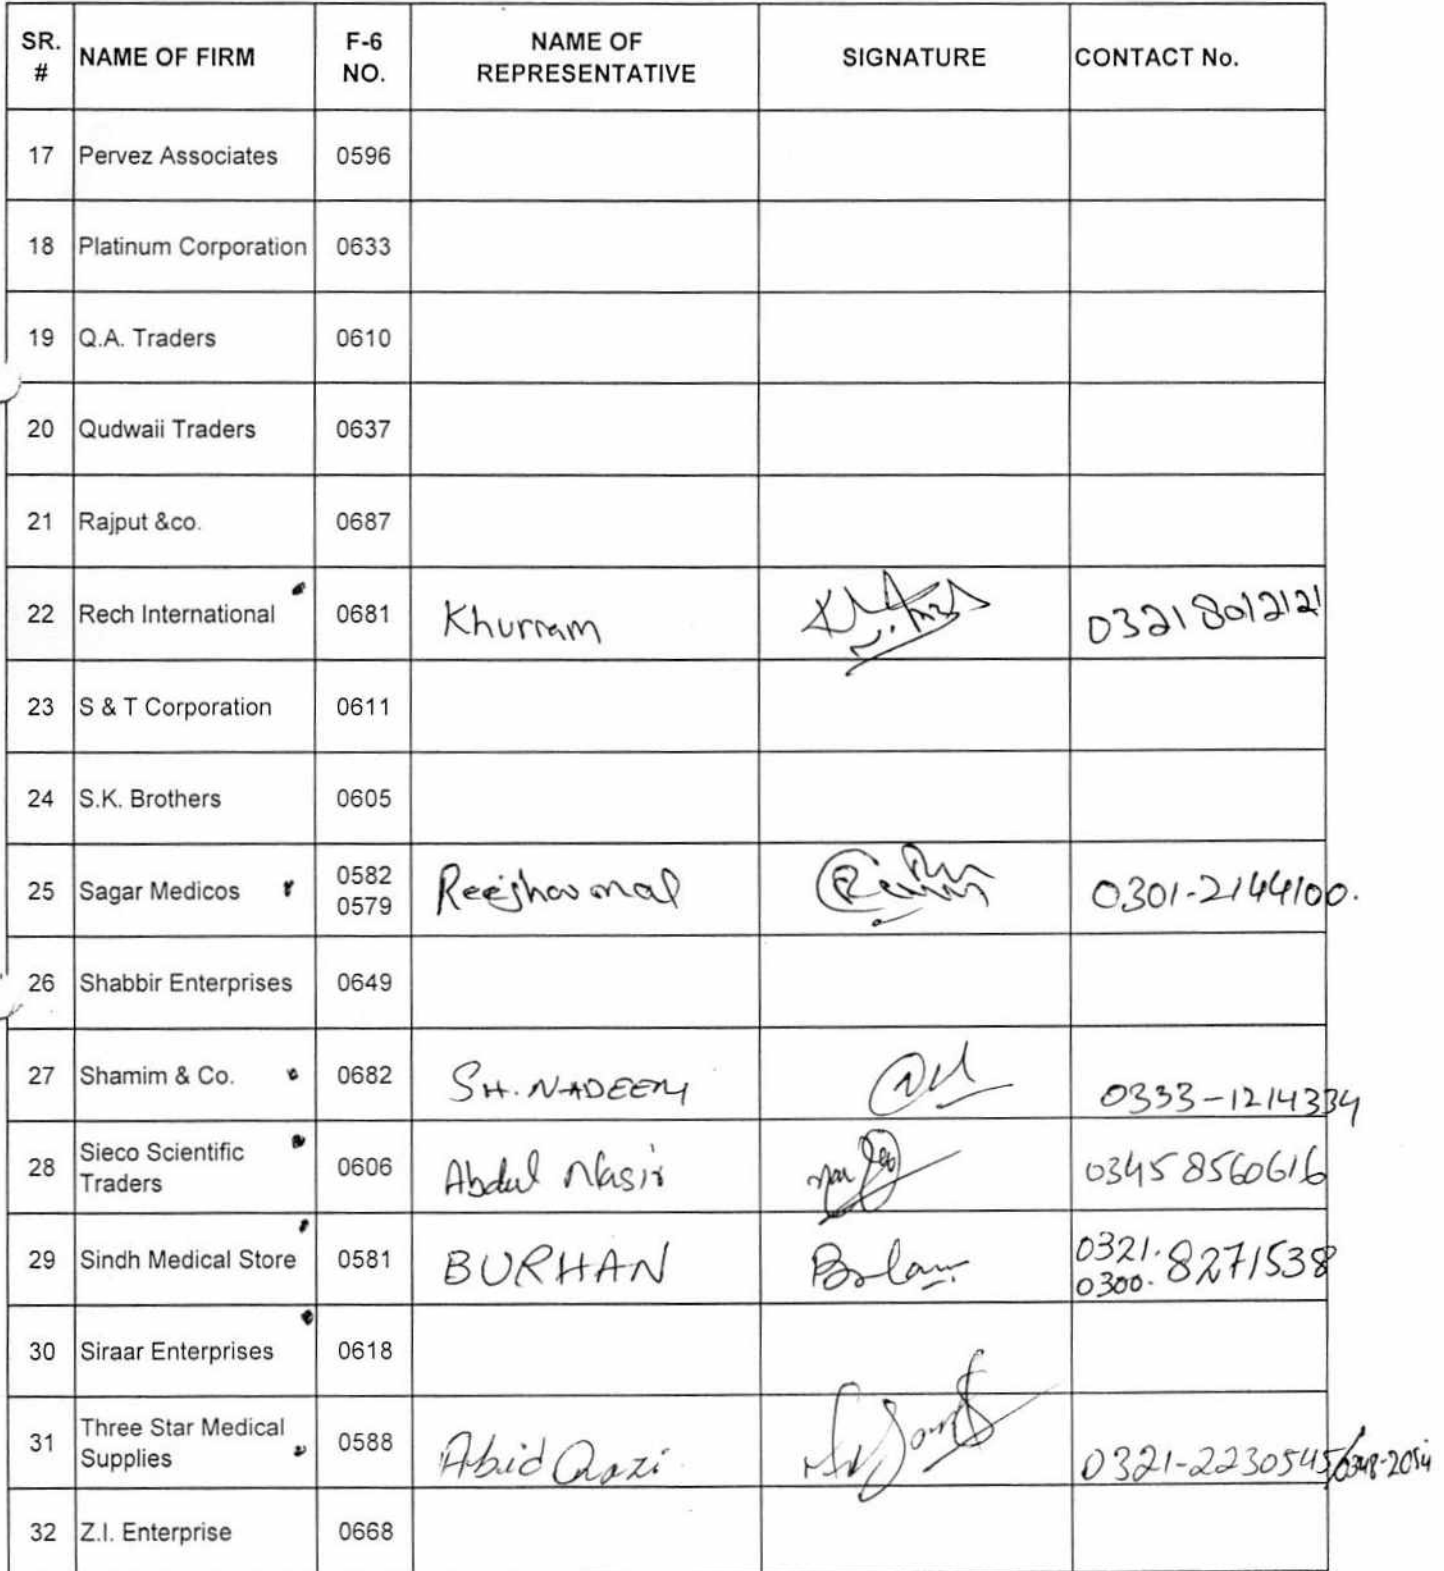 SR. # NAME OF FIRM F-6 NO. NAME OF REPRESENTATIVE SIGNATURE CONTACT No.
17 Pervez Associates 0596
18 Platinum Corporation 0633
19 Q.A. Traders 0610
20 Qudwaii Traders 0637
21 Rajput &co. 0687
22 Rech International 0681 Khurram 03218012121
23 S & T Corporation 0611
24 S.K. Brothers 0605
25 Sagar Medicos 0582 0579 0301-2144100.
26 Shabbir Enterprises 0649
27 Shamim & Co. 0682 SH. NADEEM 0333-1214334
28 Sieco Scientific Traders 0606 Abdul Nasir 03458560616
29 Sindh Medical Store 0581 BURHAN 0321. 0300. 8271538
30 Siraar Enterprises 0618
31 Three Star Medical Supplies 0588 Abid Qazi. 0321-2230545
32 Z.I. Enterprise 0668